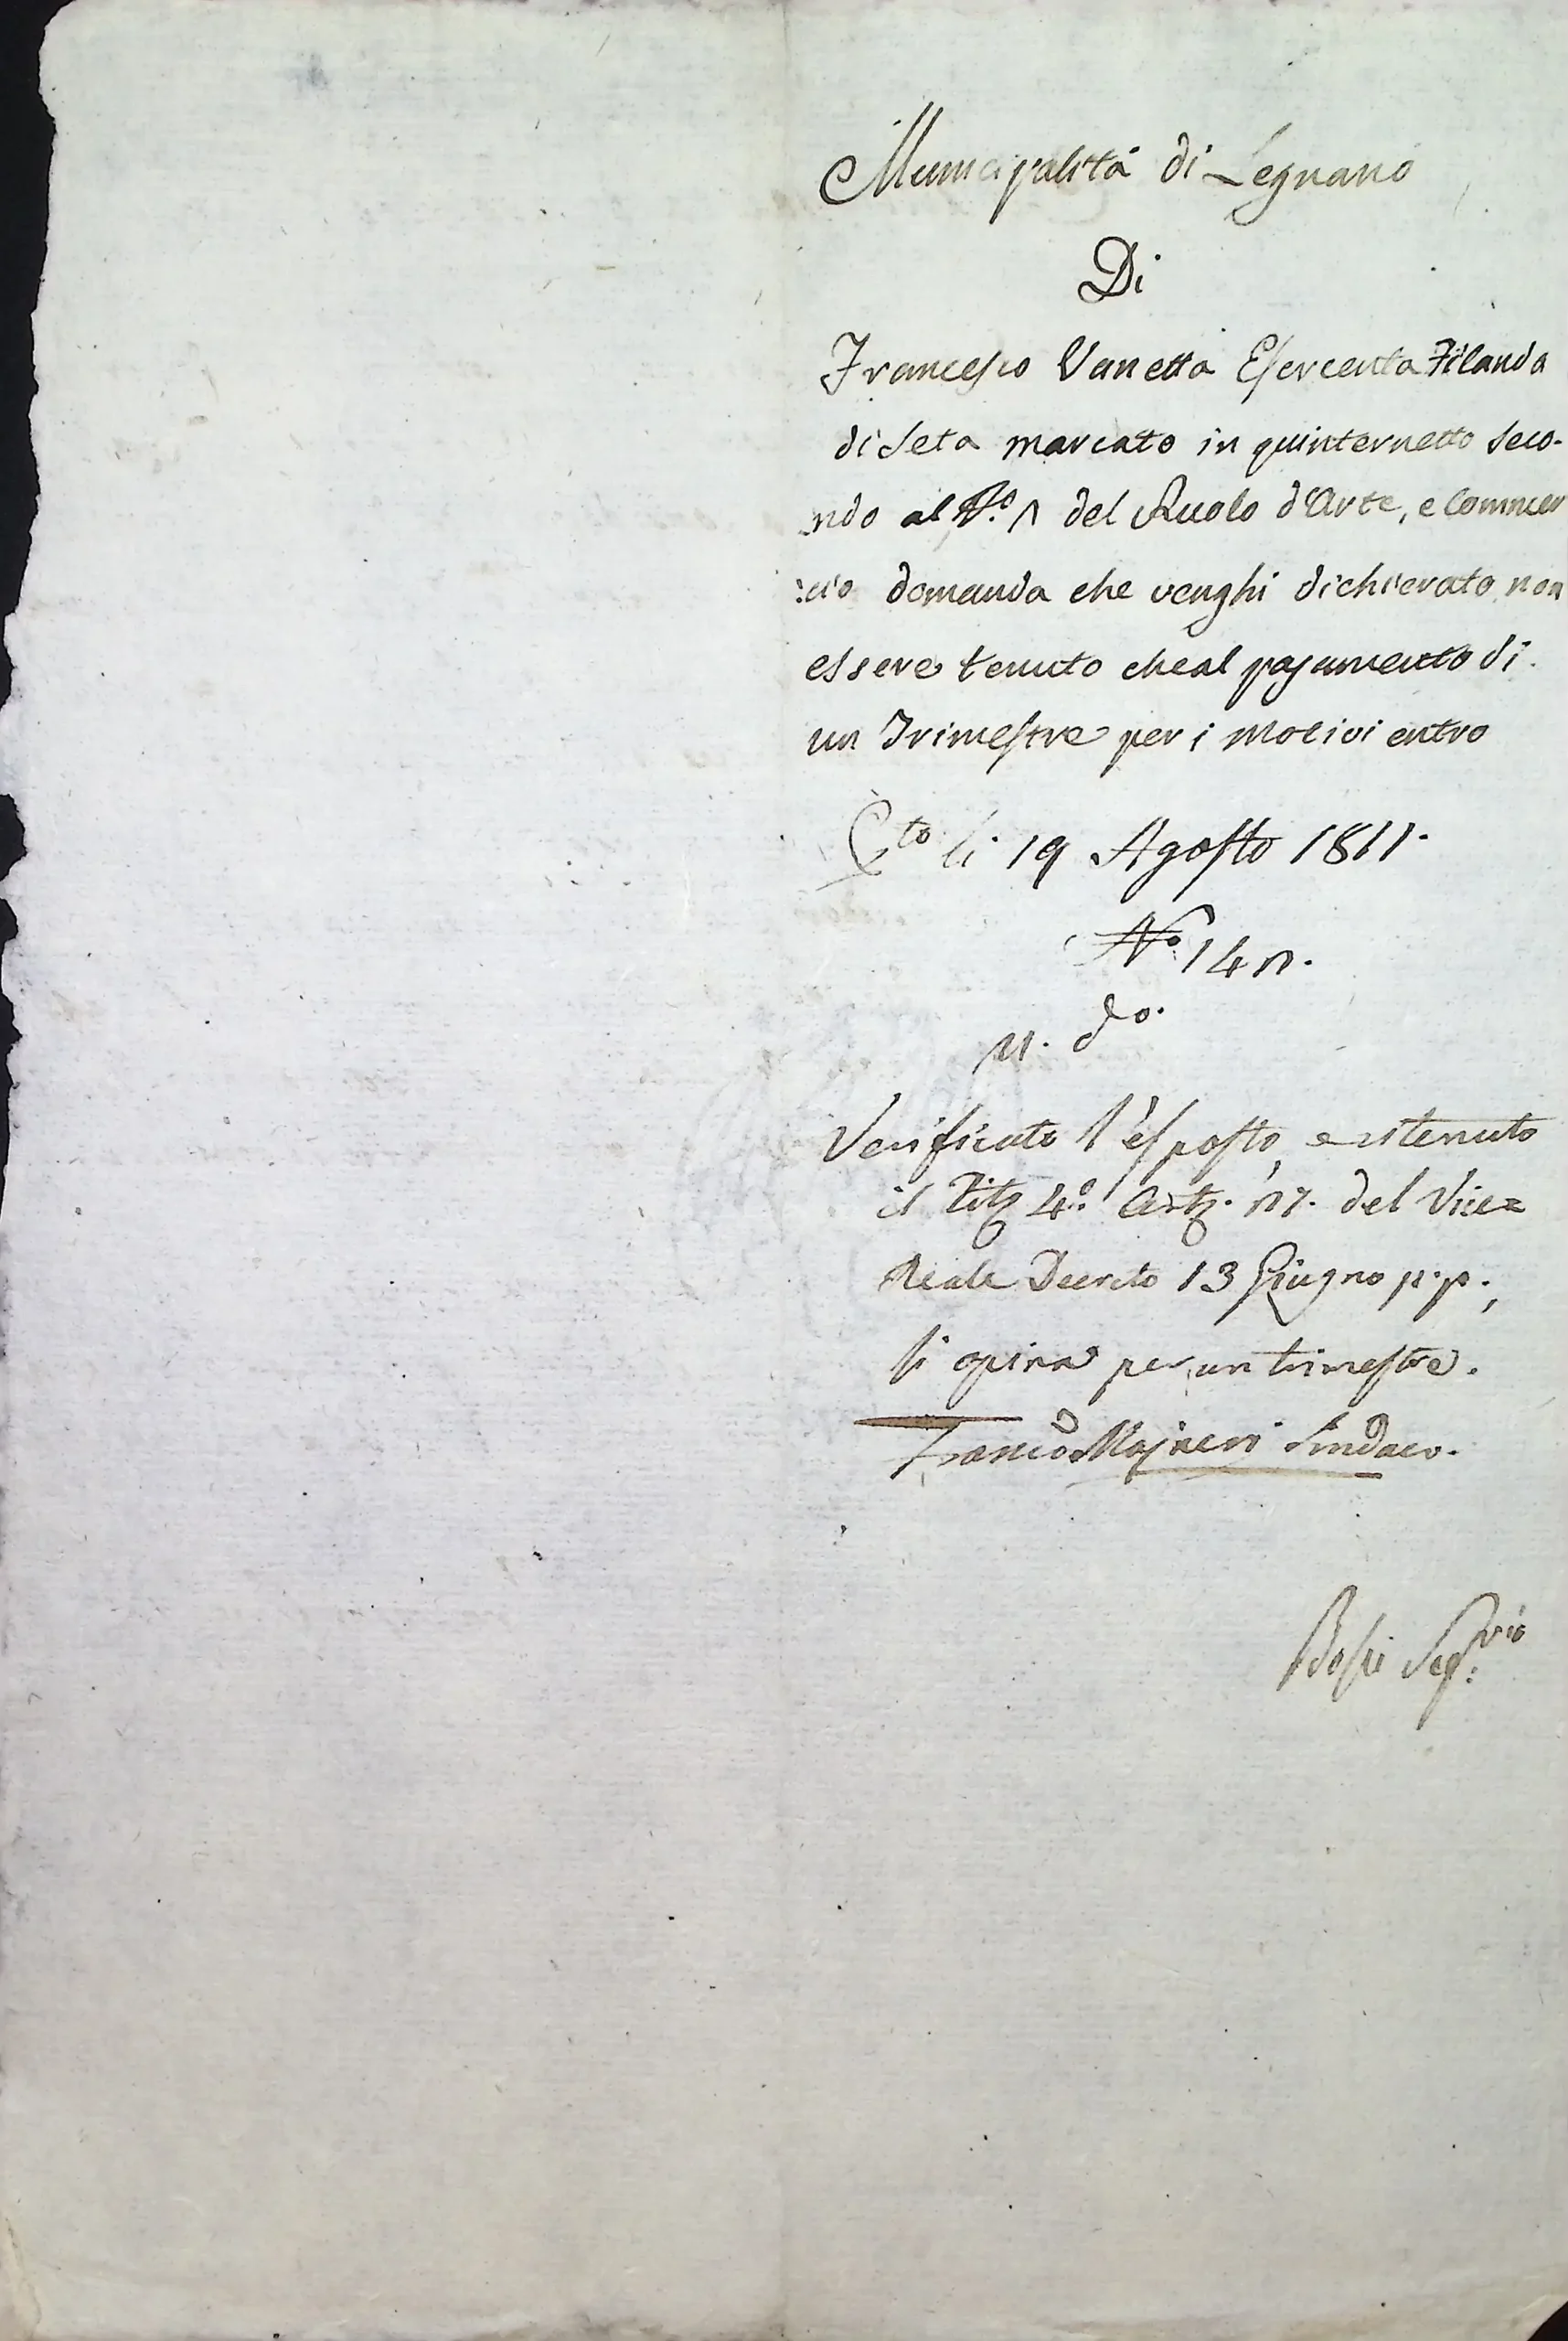 Municipalità di Legnano
Di
Francesco Vanetta Esercenta Filanda
di Seta marcato in quinternetto seco-
ndo al N.º del Ruolo d'Arte, e Commer
:cio domanda che venghi dichierato non
essere tenuto che al pagamento di
un Trimestre per i motivi entro
li 19 Agosto 1811.
Nº 14
d.o
Verificato l'esposto, e ritenuto
il Tit.º 4.º Art.º del Vice=
Reale Decreto 13 Giugno p.p.,
si opina per un trimestre.
Franc.º Majneri Sindaco.
Bossi Seg.rio